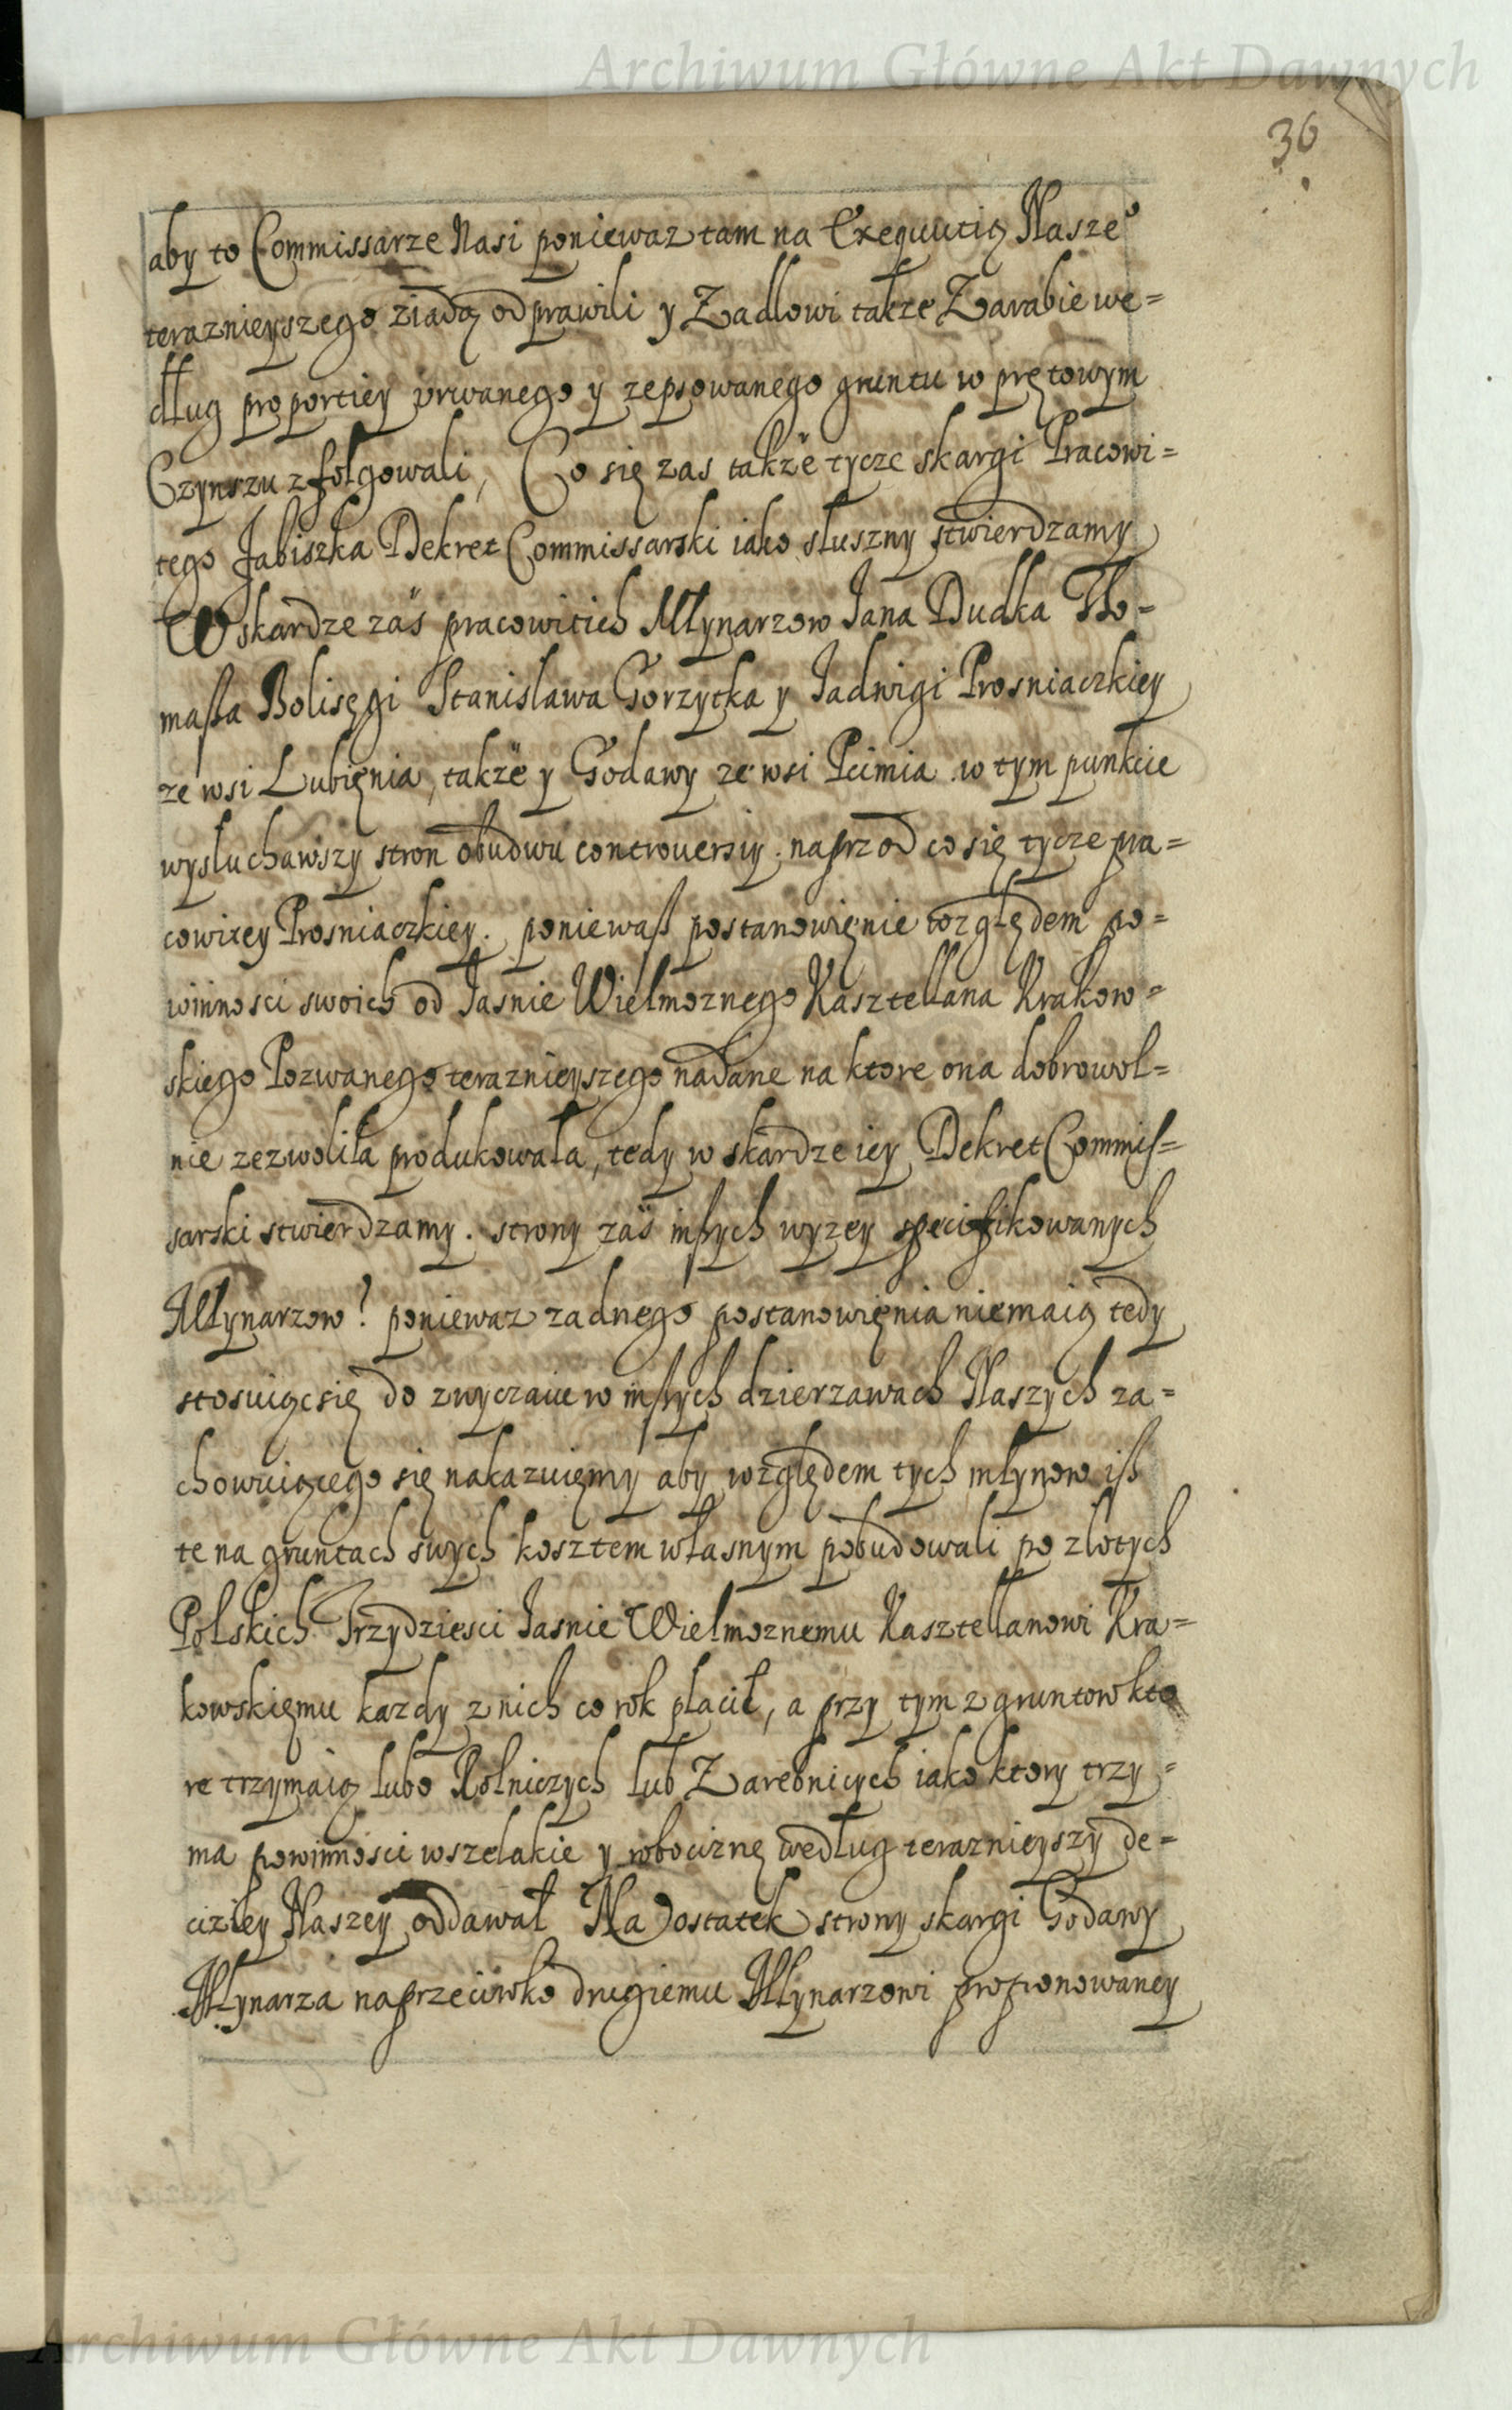 Archiwum Główne Akt Dawnych
36
aby to Commissarze Nasi poniewaz tam na Exequutią Nasze°
teraznieyszego ziadą odprawili y Zadlowi także Zarabie we=
dług proportiey vrwanego y zepsowanego gruntu w prętowym
Czynszu zfolgowali, Co się zas także tycze skargi Pracowi=
tego Jabiszka Dekret Commissarski iako słuszny stwierdzamy
W skardze zaś pracowitich Młynarzow Jana Dudka Tho=
maßa Bolisęgi Stanisława Gorzytka y Jadwigi Prosniaczkiey
ze wsi Lubięnia, także y Godawy ze wsi Pcimia w tym punkcie
wysłuchawszy stron obudwu controuersiy. naprzod co się tycze pra=
cowitey Prosniaczkiey. poniewaß postanowięnie względem po=
winnosci swoich od Jasnie Wielmoznego Kasztellana Krakow=
skiego Pozwanego teraznieyszego nadane na ktore ona dobrowol=
nie zezwoliła produkowała, tedy w skardze iey Dekret Commis=
sarski stwierdzamy. strony zaś inßych wyzey specifikowanych
Młynarzow? poniewaz zadnego postanowięnia niemaią tedy
stosuiąc się do zwyczaiu w inßych dzierzawach Naszych za=
chowuiącego się nakazuięmy aby względem tych młynow iß
te na gruntach swych kosztem własnym pobudowali po zlotych
Polskich Trzydziesci Jasnie Wielmoznemu Kasztellanowi Kra=
kowskięmu kazdy z nich co rok płacił, a przy tym z gruntow kto
re trzymaią lubo Rolniczych lub Zarebnicych iako ktory trzy=
ma powinnosci wszelakie y robociznę według teraznieyszy de=
ciziey Naszey oddawał Na Dostatek strony skargi Godawy
Młynarza naprzeciwko drugiemu Młynarzowi proponowaney
Archiwum Główne Akt Dawnych